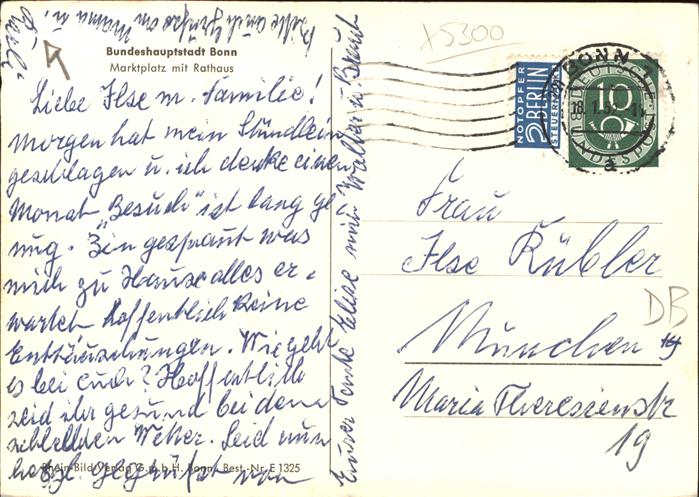 Bitte auch Grüsse an Mama u.
Bundeshauptstadt Bonn
Marktplatz mit Rathaus
Liebe Ilse m. Familie!
Morgen hat mein Stündlein
geschlagen u. ich denke einen
Monat "Besuch" ist lang ge
nug. Bin gespannt was
mich zu Hause alles er-
wartet hoffentlich keine
Enttäuschungen. Wie geht
es bei euch? Hoffentlich
seid ihr gesund bei dem
schlechten Wetter. Seid nun
herzl. gegrüßt von
Eurer Tante Elise mit Walter u. Braut
Rhein-Bild-Verlag G.m.b.H. Bonn, Best.-Nr. E 1325
x5300
NOTOPFER
2 BERLIN
STEUERMARKE
BONN
18.1.5
a
DEUTSCHE
BUNDESPOST
10
Frau
Ilse Kübler
München 19
Maria Theresienstr
19
DB